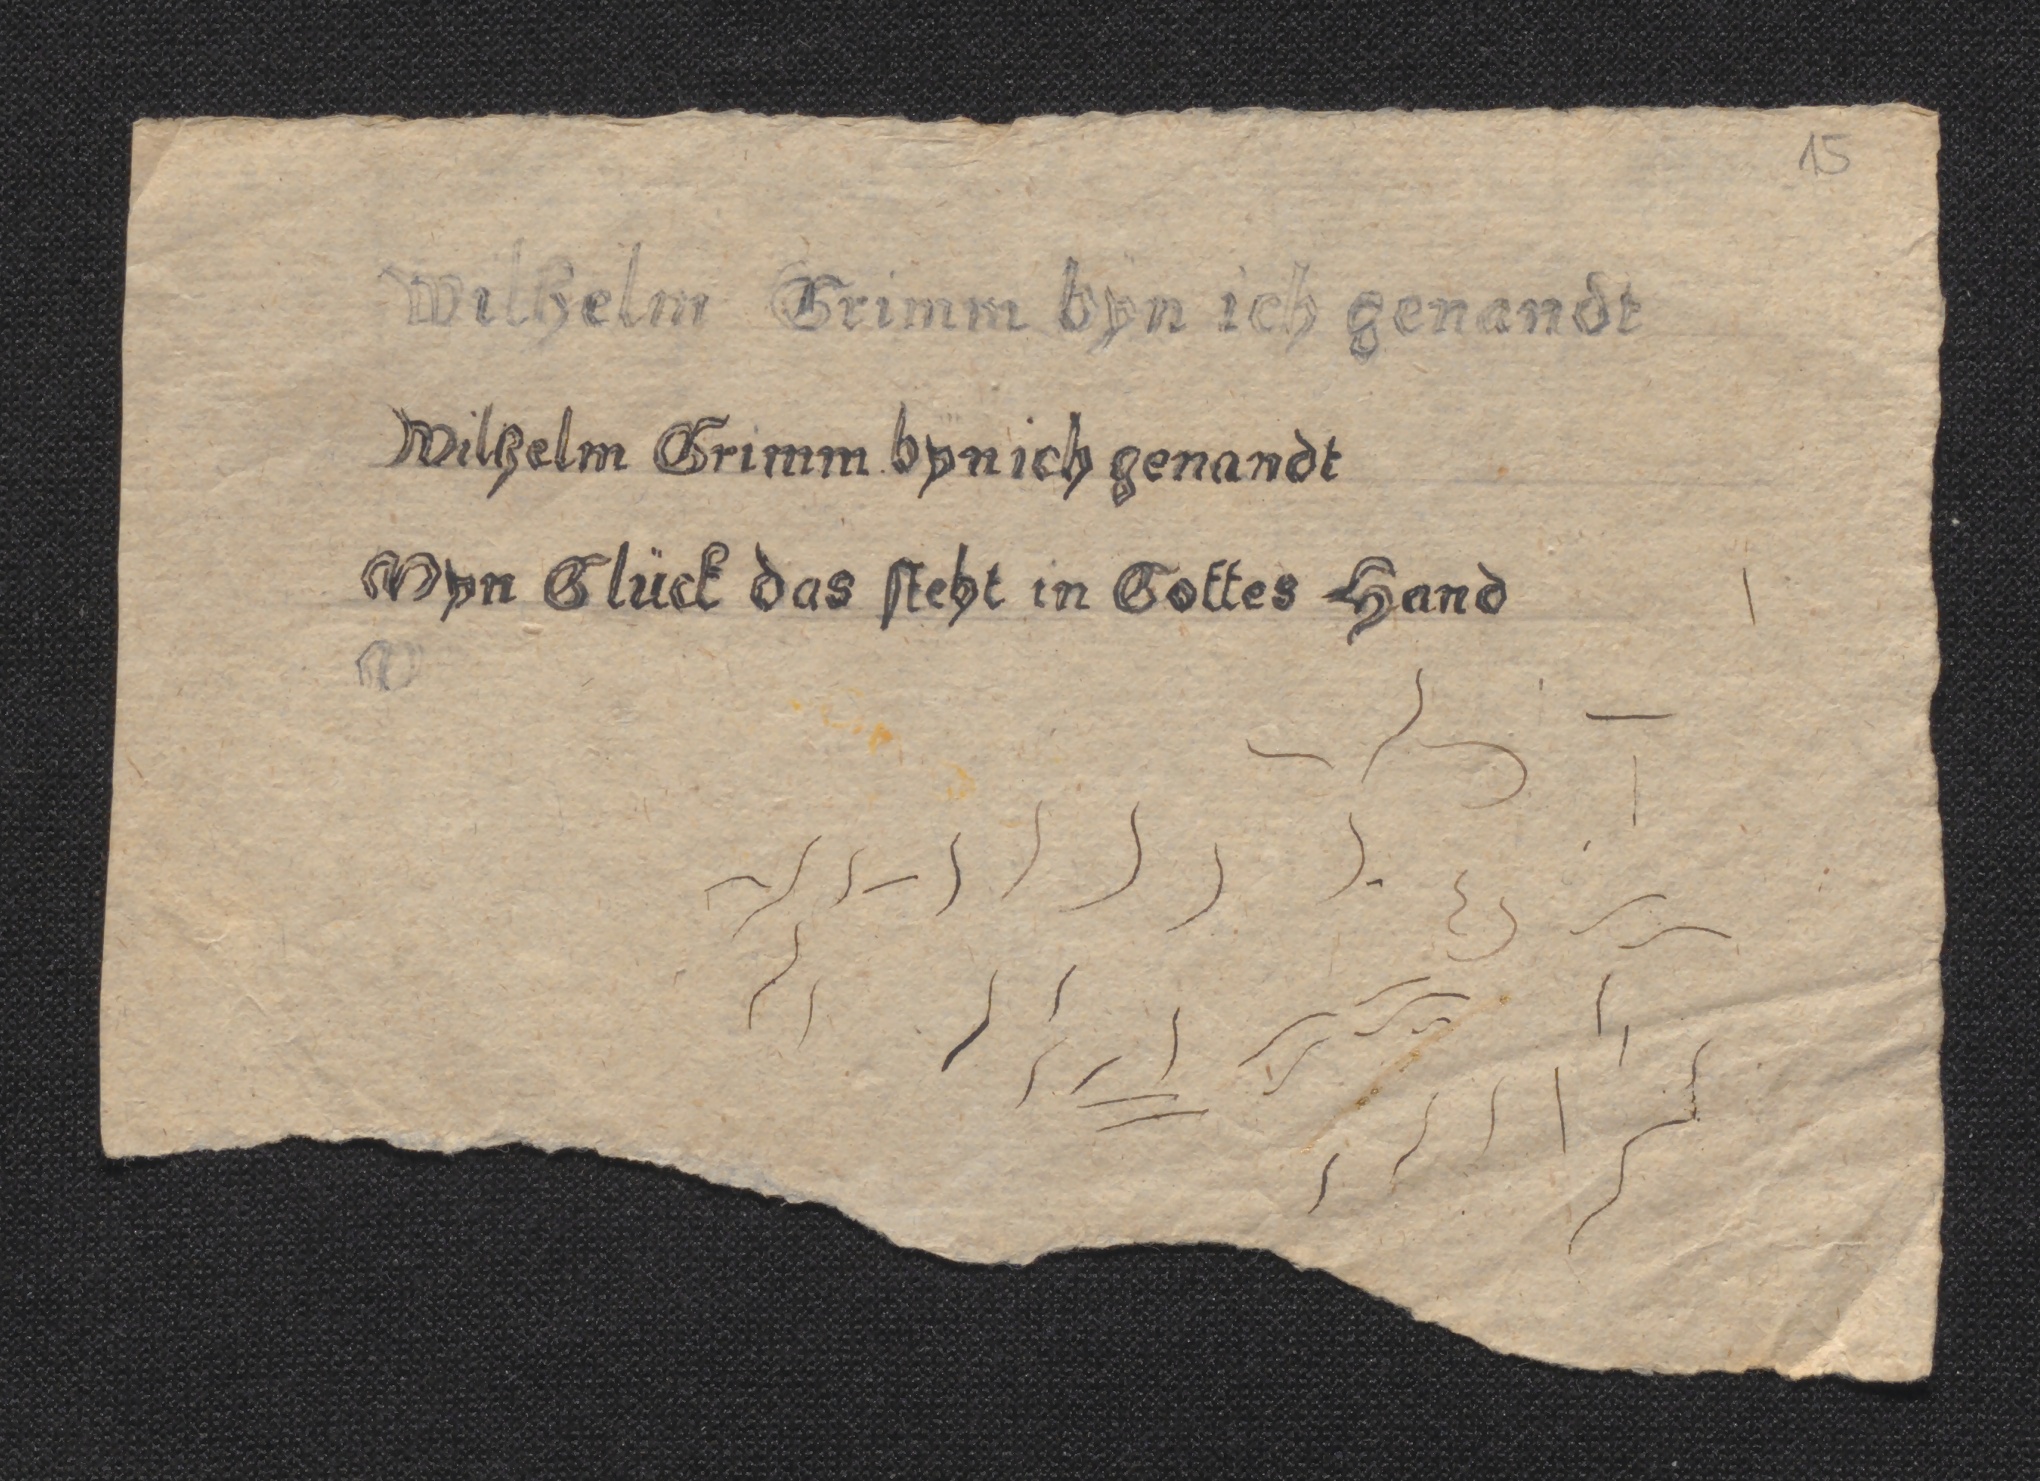 15
Wilhelm Grimm bÿn ich genandt
Wilhelm Grimm bÿn ich genandt
Myn Glück das steht in Gottes Hand
M